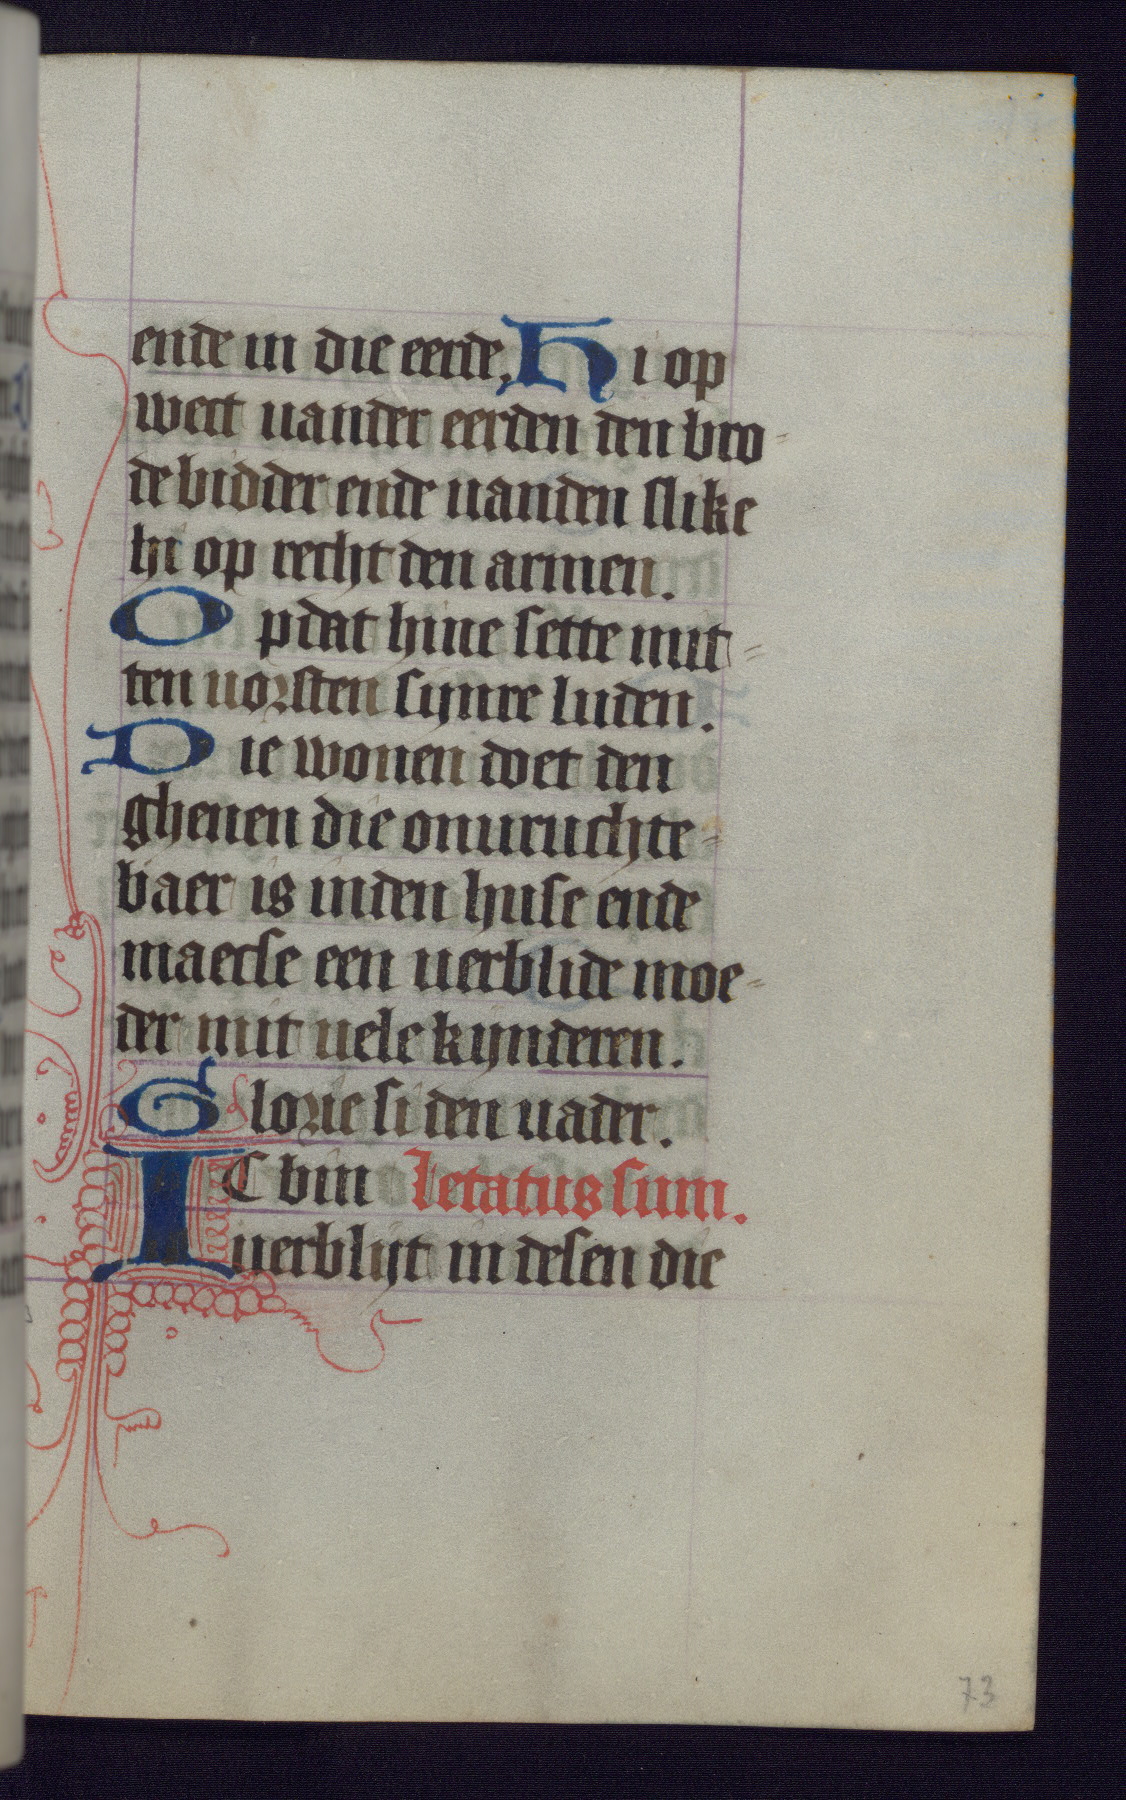 ende in die eerde. Hi op
wect uander eerden den bro-
debidder ende uanden slike
hi op recht den armen.
Opdat hine sette mit-
ten uorsten synre luden.
Die wonen doet den
ghenen die onuruchte-
baer is inden huse ende
maecse een uerblide moe-
der mit uele kynderen.
Glorie si den uader.
IC bin Letatus sum.
uerblijt in desen die
73